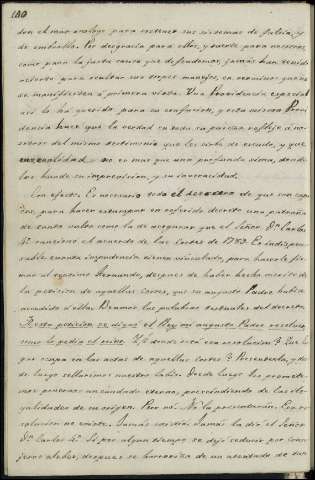 180
don el mas analogo para estender sus sistemas de falsia, y
de embrollo. Por desgracia para ellos, y suerte para nosotros,
como para la justa causa que defendemos, jamás han tenido
acierto para ocultar sus torpes manejos, en términos que no
se manifiesten á primera vista. Una Providencia especial
así lo ha querido para su confusion, y esta misma Pro
dencia hace que la verdad en toda su pureza refleje á no-
sotros del mismo testimonio que les sirbe de escudo, y que
en realidad no es mas que una profunda sima, donde
los hunde su imprevision, y su inveracidad.
Con efecto. Es necesario todo el descaro de que son capa
ces, para hacer estampar en referido decreto una patraña
de tanto valor como la de asegurar que el Señor Dn Carlos
4º sancionó el acuerdo de las Cortes de 1789. Es indispen-
sable cuanta impudencia tienen vinculada, para hacerle fir-
mar al Fernando, despues de haber hecho merito de
la peticion de aquellas Cortes, que su augusto Padre habia
accedido á ellas. Veamos las palabras testuales del decreto.
A esta peticion se dignó el Rey mi augusto Padre resolver
como lo pedia el reino. ¿Y donde está esa resolucion? ¿Que lu
gar ocupa en las actas de aquellas Cortes? Presentesela, y des-
de luego sellaremos nuestros labios. Desde luego les promete-
mos ponernos un candado eterno, prescindiendo de las ile-
galidades de su origen. Pero no. No la presentarán. Esa re-
solucion no existe. Jamás existió. Jamás la dió el Señor
Dn Carlos 4º. Si por algun tiempo se dejó seducir por conse
jeros aleves, despues se horrorizó de un atentado de tan